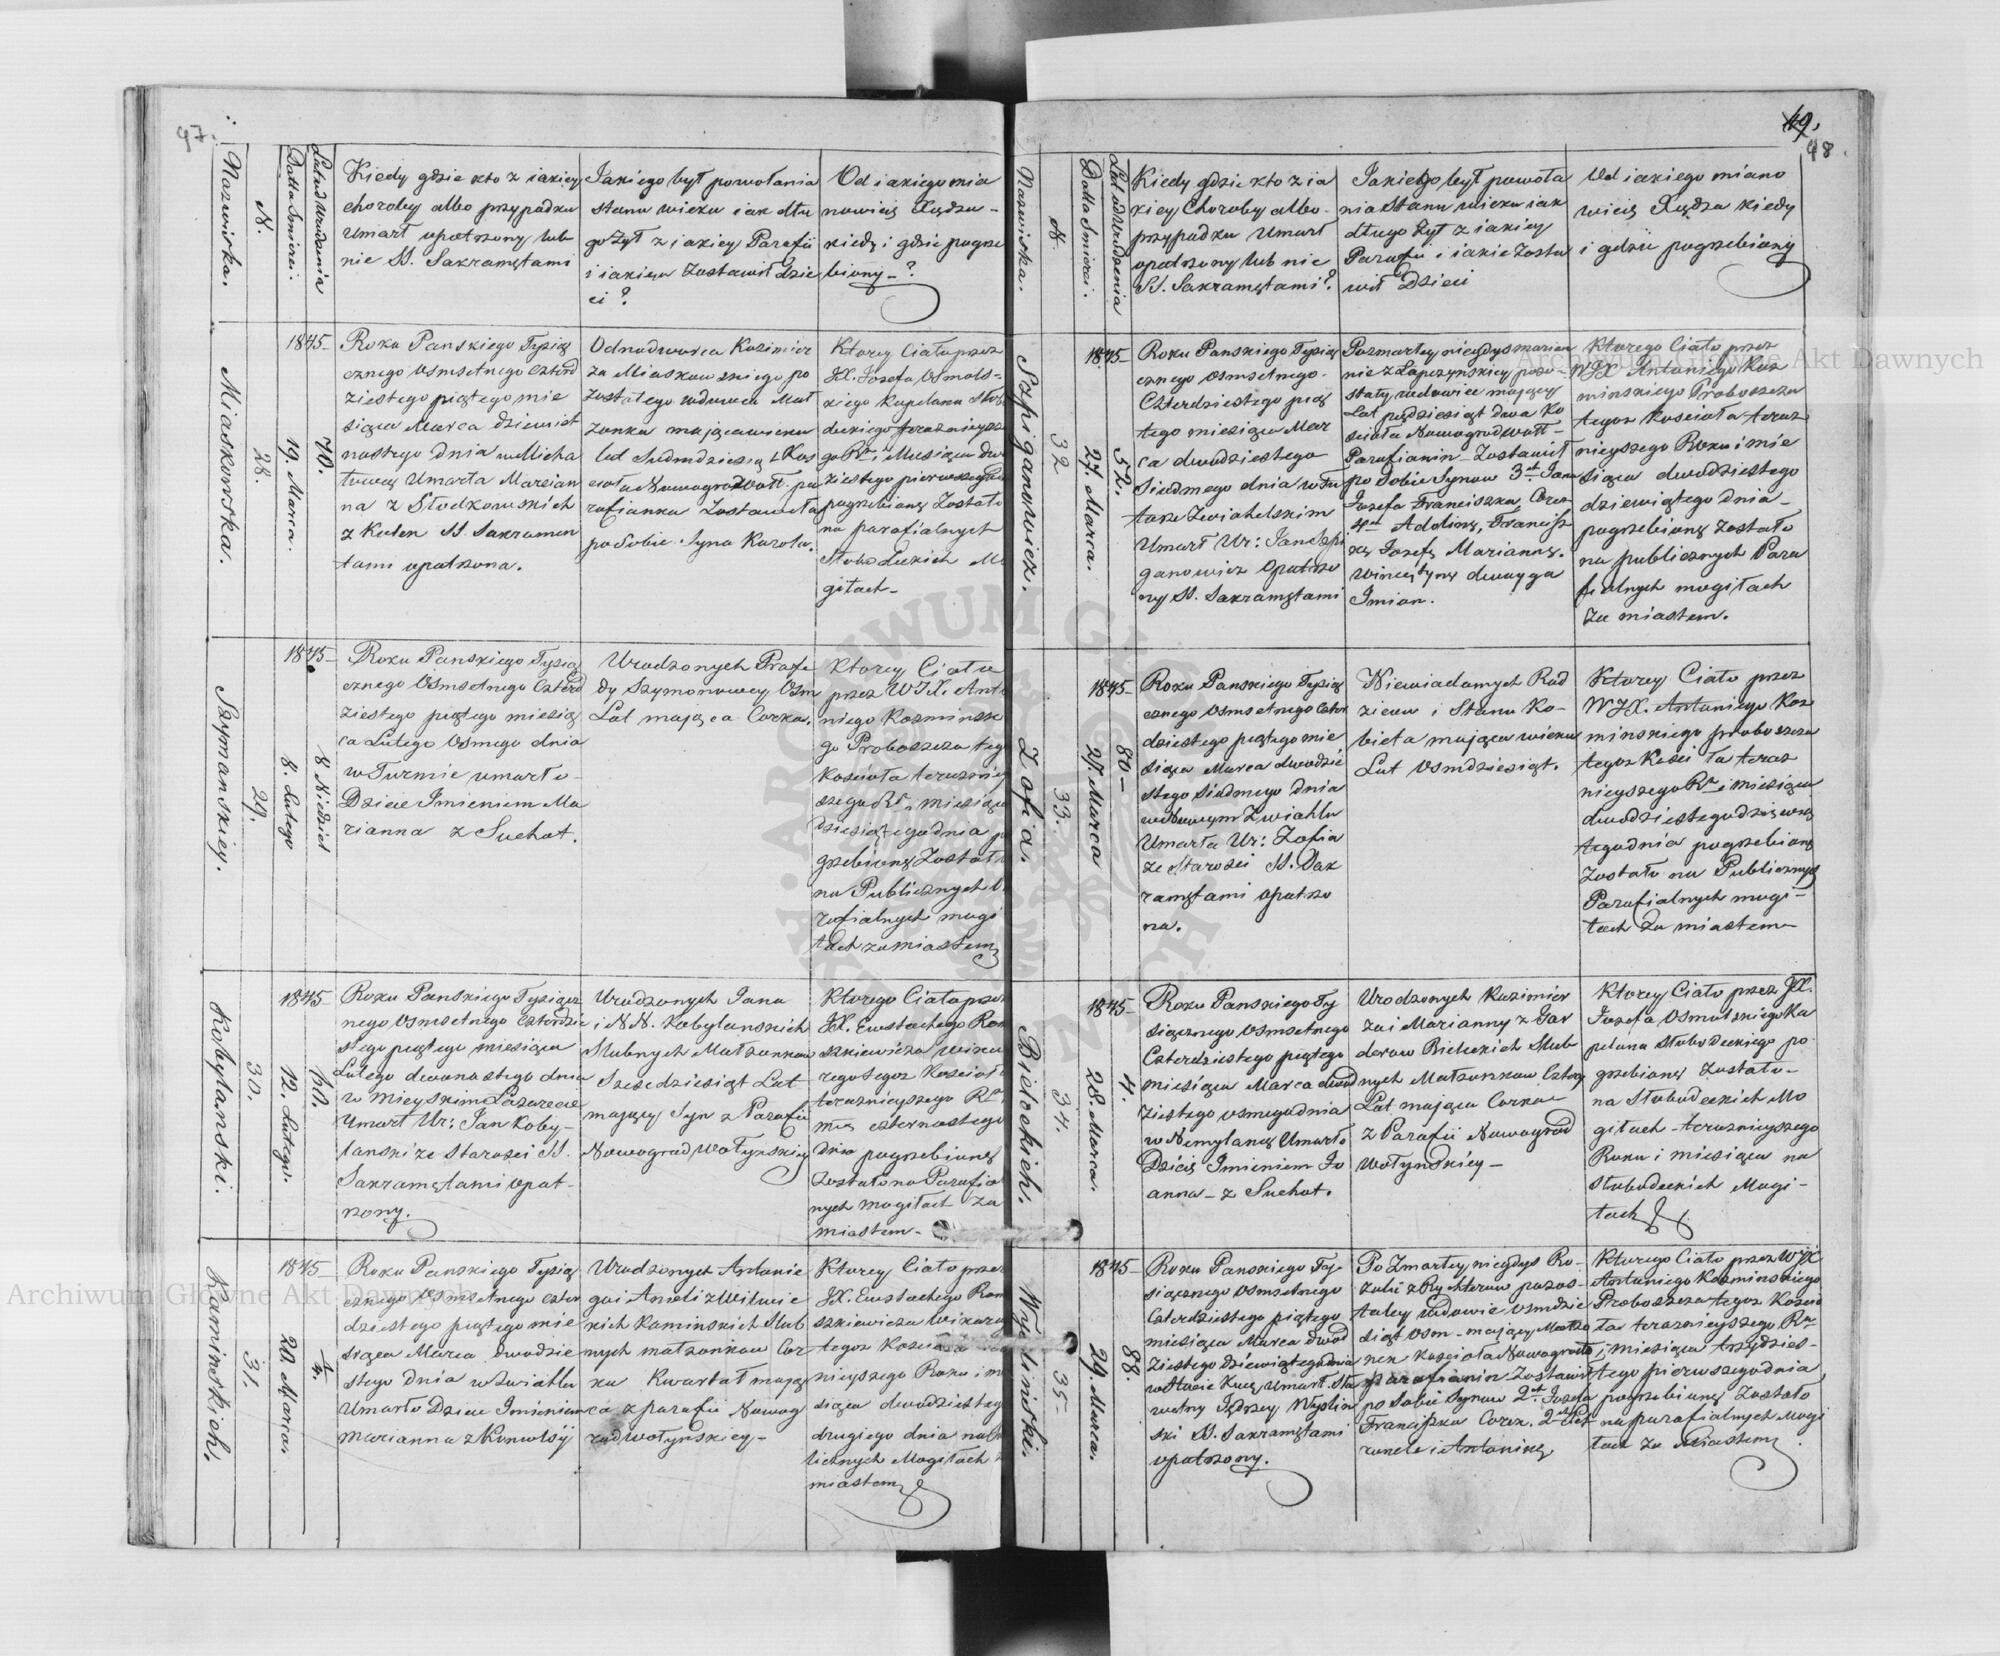 97.
Nazwiska.
N.
Datta Smierci.
Lat od Urodzenia
Kiedy gdzie kto z iakiey
choroby albo przypadku
Umarł opatrzony lub
nie SS. Sakramętami
Jakiego był powołania
stanu wieku iak dłu
go żył z iakiey Parafii
i iakiego zostawił dzie
ci?
Od iakiego mia
nowicię Xiędza
kiedy i gdzie pogrze
biony_?
Miaskowska.
28.
1845_
19. Marca.
70.
Roku Panskiego Tysią
cznego Osmsetnego Czterd
ziestego piątego mie
siąca Marca dziewiet
nastego dnia w Micha
Umarła Marian
na z Słodkowskich
SS. Sakramen
tami opatrzona.
Odnodworca Kazimier
za Miaskowskiego po
zostałego wdowca Mał
żonka mająca wieku
lat Siedmdziesiąt Kos
cioła Nowogradwoł. pa
rafianka Zostawiła
po Sobie Syna Karola.
Ktorey Ciało przez
JX. Jozefa Osmols-
kiego Kapelana Słobo
deckiego teraznieysze
go Rku i Miesiąca dw
ziestego pierwszego
pogrzebionę Zostało
na parafialnych
Słobodeckich Mo
giłach_
Szymanskiey.
29.
1845_
8. Lutego
8 Niedziel
Roku Panskiego Tysią
cznego Osmsetnego Czterd
ziestego piątego miesią
ca Lutego Osmego dnia
w Turmie umarło
Dziecie Imieniem Ma
rianna z Suchot.
Urodzonych
dy Szymonowey Osm
Lat mająca Corka.
Ktorey Ciało
przez WJX. Anto
niego Kozminsk
go Proboszcza teg
Kościoła teraznie
szego Rku miesiąca
Dziesiątego dnia po
grzebionę Zostało
na Publicznych Pa
rafialnych mogi
łach za miastem
Kobylanski.
30.
1845_
12. Lutego.
60.
Roku Panskiego Tysiącz
nego Osmsetnego Czterdzie
stego piątego miesiąca
Lutego dwunastego dnia
w mieyskim Lazarecie
Umarł Ur: Jan Koby-
lanski ze Starosci SS.
Sakramętami opat-
rzony.
Urodzonych Jana
i N.N. Kobylanskich
Slubnych Małżonkow
Szescdziesiąt Lat
mający Syn z Parafii
Nowogradwołynskiey
Ktorego Ciało przez
JX. Eustachego Rom
szkiewicza wika
rego tegoż Kościoła
teraznieyszego Rku
mca czternastego
Dnia pogrzebionę
Zostało na Parafial
nych mogiłach za
miastem_
Kaminskich.
31.
1845_
20 Marca.
1/4.
Roku Panskiego Tysią
cznego Osmsetnego Czter
dziestego piątego mie
siąca Marca dwudzie
stego dnia w Zwiahlu
Umarło Dziecie Imieniem
Marianna z Konwulsij
Urodzonych Antonie
go i Anieli z Wilwic
kich Kaminskich Slub
nych małżonkow Cor
ka Kwartał mają
ca z parafii Nowog
radwołynskiey_
Ktorey Ciało przez
JX. Eustachego Rom
szkiewicza Wikary
tegoż Kościoła
nieyszego Roku i m
siąca dwudziesteg
drugiego dnia na
licznych Mogiłach
miastem
49.
98.
Nazwiska.
N.
Datta Smierci.
Lat od Urodzenia
Kiedy gdzie kto z ia
kiey Choroby albo
przypadku Umarł
opatrzony lub nie
SS. Sakramętami?
Jakiego był powoła
nia Stanu wieku iak
długo żył z iakiey
Parafii i iakie zosta
wił Dzieci
Od iakiego miano
wicię Xiędza kiedy
i gdzie pogrzebiony
Szpiganowicz.
32
1845_
27. Marca.
52.
Roku Panskiego Tysią
cznego Osmsetnego
Czterdziestego pią
tego miesiąca Mar
ca dwudziestego
Siodmego dnia w
Zwiahelskim
Umarł Ur: Jan Szpi
ganowicz Opatrzo
ny SS. Sakramętami
Po zmarłey niegdys marian
nie z Łapczynskiey pozo-
stały wdowiec mający
Lat piędziesiąt dwa Ko
scioła Nowogradwoł-
Parafianin Zostawił
po Sobie Synow 3ch Jana
Jozefa Franciszka, Corek
Adolinę, Francisz
kę Jozefę Mariannę.
Wincętynę dwoyga
Imion.
Ktorego Ciało przez
WJX Antoniego Koz
minskiego Proboszcza
tegoż Kościoła teraz
nieyszego Roku i mie
siąca dwudziestego
dziewiątego dnia_
pogrzebionę zostało
na publicznych Para
fialnych mogiłach
Za miastem.
Zofia.
33.
1845_
27 Marca
80_
Roku Panskiego Tysią
cznego Osmsetnego Czter
dziestego piątego mie
siąca Marca dwudzie
stego Siodmego dnia
w Nowym Zwiahlu
Umarła Ur: Zofia
ze Starosci SS. Sak
ramętami opatrzo
na.
Niewiadomych Rod
zicow i Stanu Ko-
bieta mająca wieku
Lat Osmdziesiąt.
Ktorey Ciało przez
WJX. Antoniego Koz
minskiego proboszcza
tegoż Kościoła teraz
nieyszego Rku i miesiąca
dwudziestego dziewią
tego dnia pogrzebionę
Zostało na Publicznych
Parafialnych mogi-
łach Za miastem_
Bielockich.
34.
1845
28 Marca.
4.
Roku Panskiego Ty
siącznego Osmsetnego
Czterdziestego piątego
miesiąca Marca dwud
ziestego osmego dnia
w Nemylance Umarło
Dziecię Imieniem Jo
anna_ z Suchot.
Urodzonych Kazimier
za i Marianny z Gar
derow Bielickich Slub
nych Małżonkow Cztery
Lat mająca Corka
z Parafii Nowograd
wołynskiey_
Ktorey Ciało przez JX.
Jozefa Osmolskiego Ka
pelana Słobodeckiego po
grzebionę Zostało_
na Słobodeckich Mo
giłach_ teraznieyszego
Roku i miesiąca na
Słobodeckich Mogi-
łach
Wyslinski.
35_
1845_
29. Marca.
88.
Roku Panskiego Ty
siącznego Osmsetnego
Czterdziestego piątego
miesiąca Marca dwud
ziestego dziewiątego dnia
Umarł Sta
wetny Jędrzey Wyslin
ski SS. Sakramętami
opatrzony.
Po Zmarłey niegdys Ro-
zalii z Rychterow pozos-
tałey wdowie osmdzie
siąt osm_ mający Małżo
nek Kościoła Nowogradw
parafianin Zostawił
po Sobie Synow 2ch Jozefa
Franciszka Corek. 2ch Pet
ronele i Antoninę
Ktorego Ciało przez WJX
Antoniego Kozminskiego
Proboszcza tegoż Koscio
ła teraznieyszego Rku
i miesiąca trzydzies-
tego pierwszego dnia
pogrzebionę Zostało
na parafialnych Mogi
łach za Miastem
Archiwum Główne Akt Dawnych
Archiwum Główne Akt Dawnych